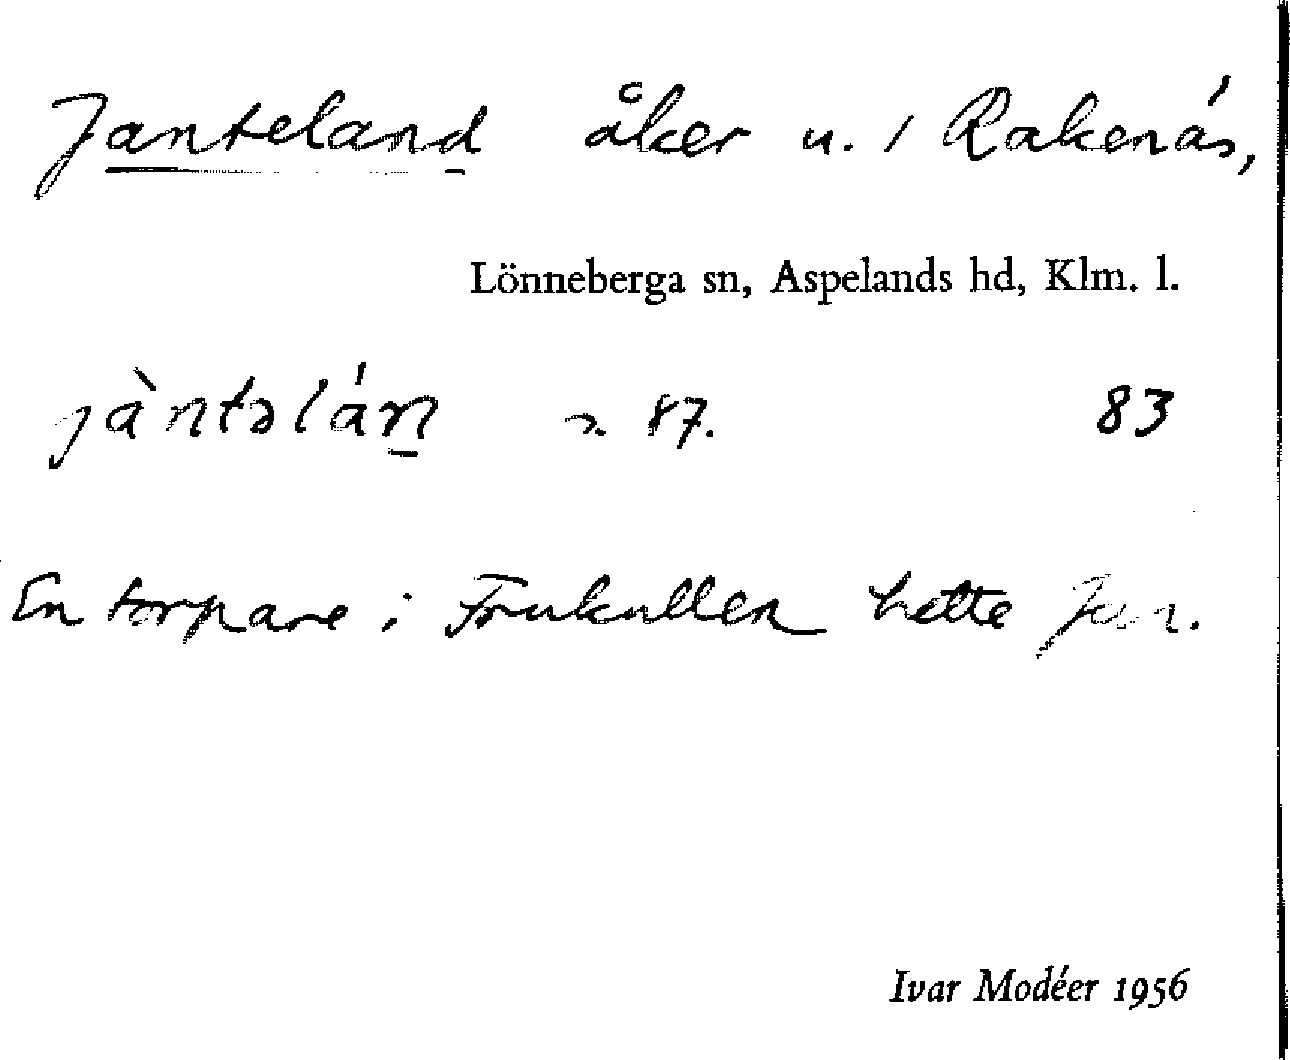 Janteland åker u. 1 Rakenäs,
Lönneberga sn, Aspelands hd, Klm. l.
jàntəlán s. 87. 83
En torpare i Frukullen hette Jan.
Ivar Modéer 1956